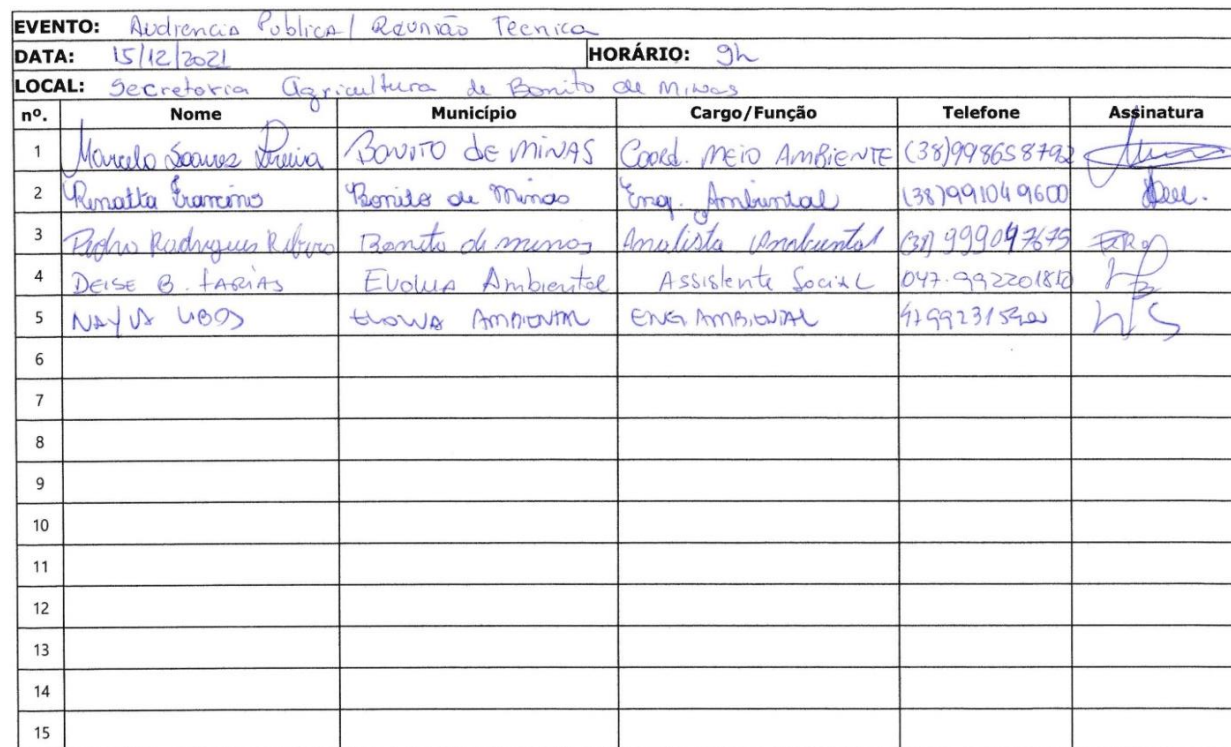 EVENTO: Audiencia Publica / Reunião Tecnica
DATA: 15/12/2021 HORÁRIO: 9h
LOCAL: Secretaria agricultura de Bonito de Minas
nº. Nome Município Cargo/Função Telefone Assinatura
1 Marcelo Soares Pereira BONITO DE MINAS Coord. MEIO AMBIENTE (38)998658792
2 Renatta Bonito de Minas Eng. Ambiental (38)991049600
3 Pedro Rodrigues Ribeiro Bonito de minas Analista Ambiental 999047675
4 DEISE B. FARIAS EVOLUA Ambiental Assistente Social
5 EVOLUA AMBIENTAL ENG AMBIENTAL
6
7
8
9
10
11
12
13
14
15